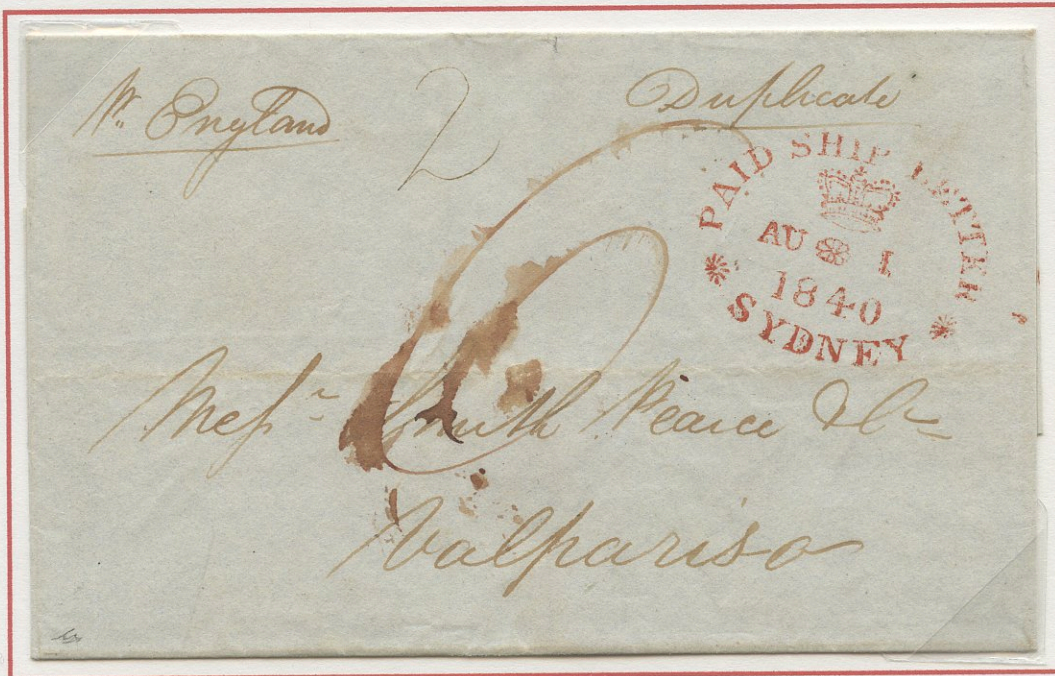 Pr. England
2
Duplicate
PAID SHIP LETTER
AU 1
1840
SYDNEY
6
Messrs Smith Pearce & Co
Valpariso